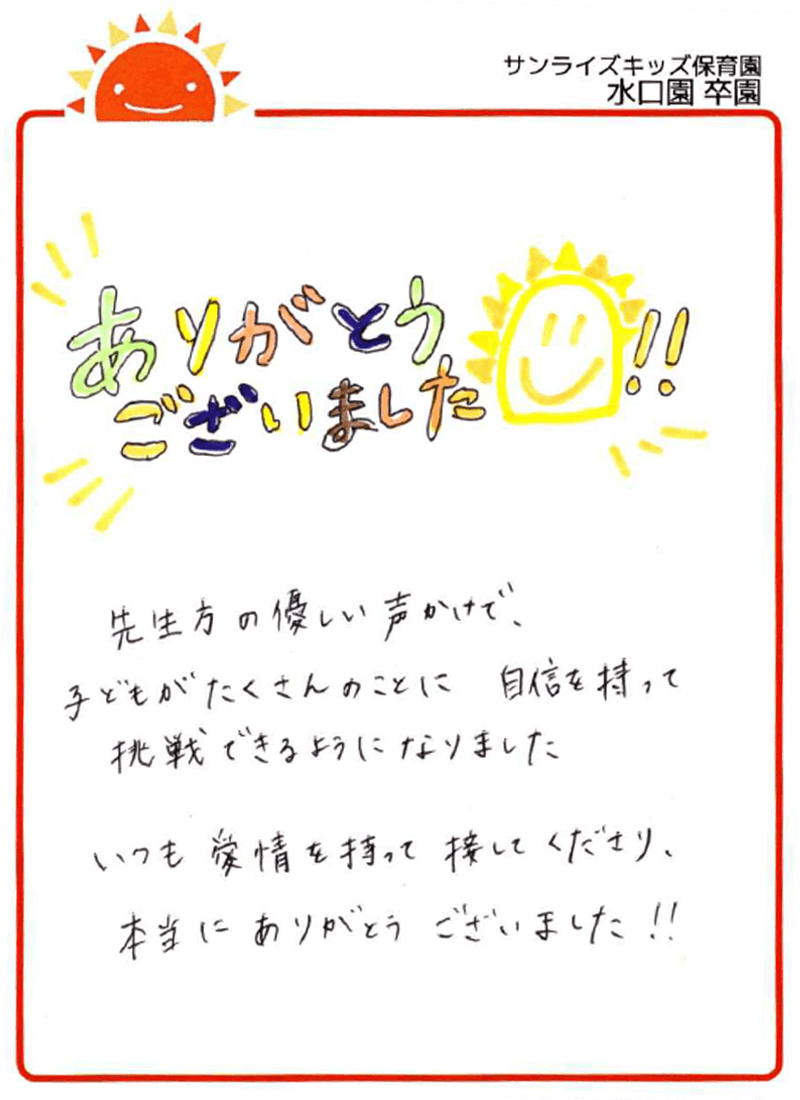 サンライズキッズ保育園
水口園 卒園
ありがとう
ございました!!
先生方の優しい声かけで、
子どもがたくさんのことに 自信を持って
挑戦できるようになりました
いつも 愛情を持って 接してくださり、
本当に ありがとう ございました!!